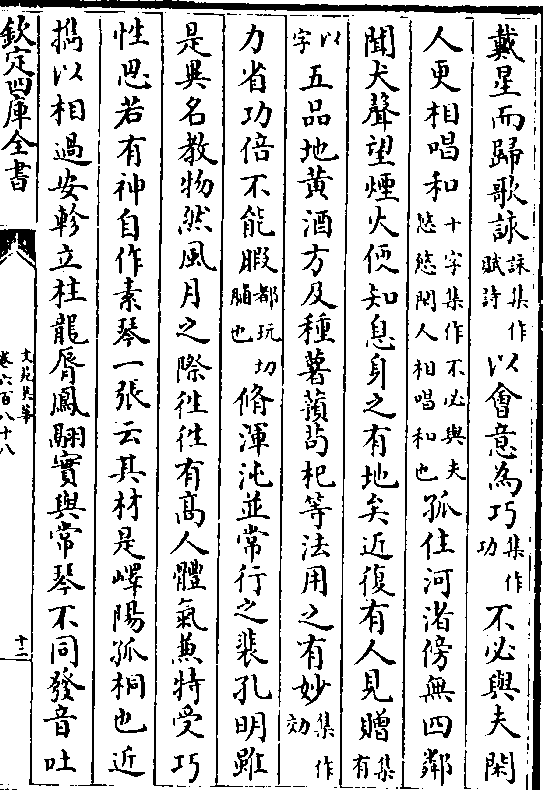 戴星而歸歌詠詠集作賦詩以會意為巧集作功不必與夫閑
人更相唱和十字集作不必與夫悠悠閑人相唱和也孤住河渚傍無四鄰
聞犬聲望煙火便知息身之有地矣近復有人見贈集有
以字五品地黄酒方及種薯蕷苟杞等法用之有妙集作効
力省功倍不能腶都玩切脯也脩渾沌並常行之裴孔明雖
是異名教物然風月之際往往有高人體氣兼特受巧
性思若有神自作素琴一張云其材是嶧陽孤桐也近
攜以相過安軫立柱龍脣鳳翮實與常琴不同發音吐
欽定四庫全書
文苑英華
卷六百八十八
十二